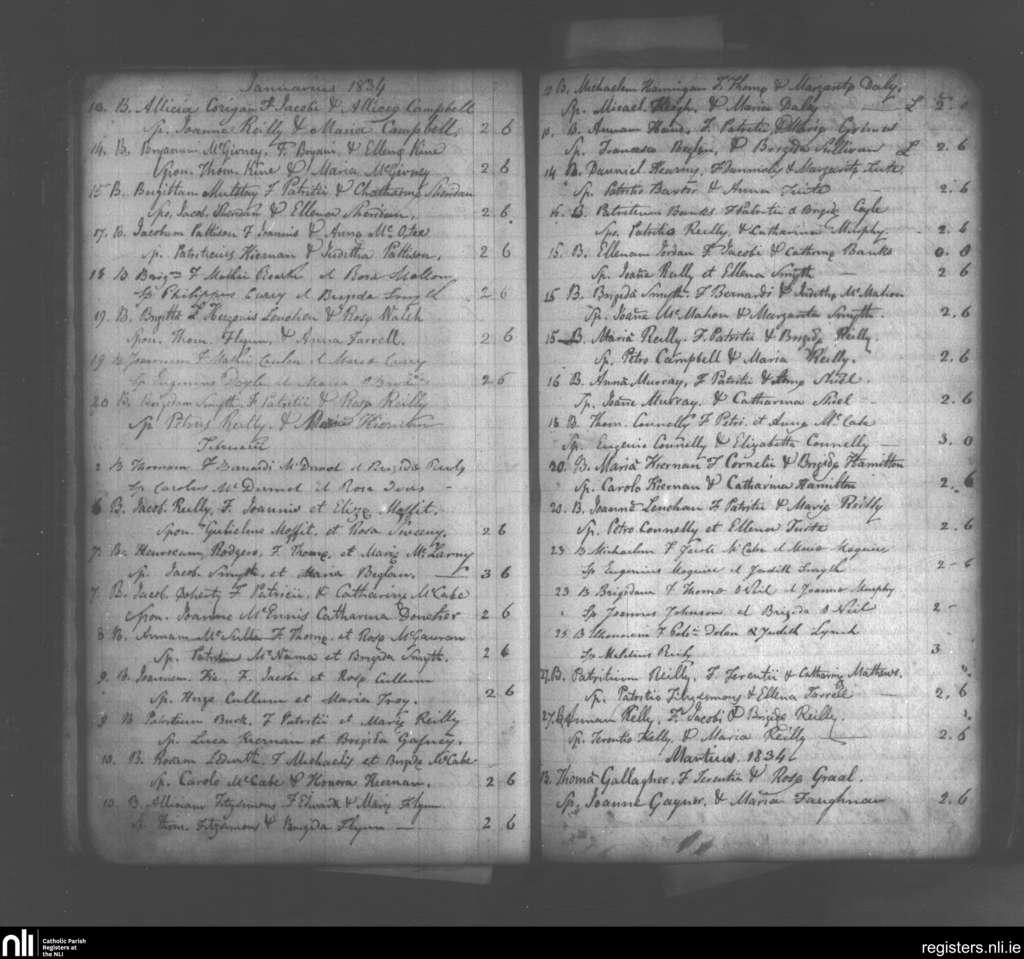 Januarius 1834
13. B. Allicia Corigan F Jacobi & Alliciæ Campbell
Sp. Joanne Reilly & Maria Campbell. 2 6
14. B. Benjamin McGivney. F. Benjam. & Ellenæ Kine
Spon. Thom. Kine & Maria McGivney 2 6
15 B. F Patritii & Chatharinæ Sheridan
Spo. Jacob. Sheridan & Ellenor Sheridan. 2 6
17. B. Jacobum Pattison F Joannis & Anna Mc
Sp. Patricius Kiernan & Juditha Pattison. 2 6
18 B F Mathei et Rosa
Sp Philippus Carey et Brigida Smyth 2 6
19. B. Brigitta F Lenehan & Rosæ Walsh
Spon. Thom. Flynn. & Anna Farrell. 2 6
19 B Joannem F Mathei et Maria Carey
Sp Eugenius Doyle et Maria 2 6
20 B. Brigidam Smyth. F Patritii & Rosa Reilly
Sp Petrus Reilly. & Maria Hiernan
Februarii
2 B Thomam F Bernardi McDermod et Brigida
Sp Carolus McDermod et Rosa
6 B. Jacob. Reilly, F. Joannis et Elizæ Moffit.
Spon. Gulielmo Moffit. et Rosa Sweeny. 2 6
7. B. Rodgers. F Thomæ. et Mariæ McLarny
Sp. Jacob Smyth. et Maria Beglan. 3 6
7. B. Jacob. Doherty F Patricii. & Catharinæ McCabe
Spon. Joanne McEnnis Catharina Donoher 2 6
8 B. Annam F Thomæ. et Rosæ McGauran
Sp. McNama et Brigida Smyth. 2 6
9. B. Joannem. F. Jacobi et Rosæ Cullum
Sp. Hugo Cullum et Maria Troy. 2 6
9 B Patritium Burk. F Patritii et Mariæ Reilly
Sp. Luca Kiernan et Brigida Gafney.
10. B. Rosam Ledwith. F Michaelis et Brigidæ McCabe
Sp. Carolo McCabe & Honora Kiernan. 2 6
10 B. Alliciam Fitzsimons F Edwardi & Mariæ Flynn
Sp. Thom. Fitzsimons & Brigida Flynn 2 6
12 B. Michaelem Hannigan F. Thomæ & Margaretæ Daly.
Sp. Micael & Maria Daly L 5. 0
B. Annam F. Patritii & Mariæ Grimes
Sp. Francisco Beglin, & Brigida Sullivan L 2. 6
14 B. Danniel Kearns, F Dannielis & Margaretæ Tuite
Sp. Patritio Baxter & Anna Tuite 2. 6
B. Patritium Banks F Patritii & Brigidæ Coyle
Spo. Patritio Reilly, & Catharina Murphy. 2. 6
15. B. Ellenam Jordan F. Jacobi & Catharinæ Banks 0. 0
Sp. Joane Reilly et Ellena Smyth 2 6
15 B. Brigida Smyth. F Bernardi & Judithæ McMahon
Sp. Joane McMahon & Margareta Smyth. 2. 6
15 B. Maria Reilly. F. Patritii & Brigidæ Reilly.
Sp. Petro Campbell & Maria Reilly. 2. 6
16 B. Anna Murray, F Patritii & Annæ Shiel.
Sp. Joane Murray. & Catharina Shiel 2. 6
18 B. Thom. Connelly F Petri. et Annæ McCabe
Sp. Eugenio Connelly & Elizabetta Connelly 3. 0
20. B. Maria Hiernan F Cornelii & Brigidæ Hamilton
Sp. Carolo Kiernan & Catharina Hamilton 2. 6
20. B. Joanne Lenehan F. Patritii & Mariæ Reilly
Sp. Petro Connelly et Ellenor Tuite 2. 6
23 B Michaelem F McCabe et Maria Maguire
Sp Eugenius Maguire et Judith Smyth 2 6
23 B Brigidam F Thoma O Neil et Joanna Murphy
Sp Joannes Johnson et Brigida O Neil 2
25 B F Dolan & Judith Lynch
Sp 3
27. B. Patritium Reilly. F. Terentii & Catharinæ Mathews.
Sp. Patritio Fitzsimons & Ellena Farrell 2. 6
27. B Annam Kelly. F. Jacobi & Brigidæ Reilly.
Sp. Terentio Kelly. & Maria Reilly 2. 6
Martius. 1834
B. Thoma Gallagher. F Terentii & Rosæ Graal.
Sp. Joanne Gaynor. & Maria Faughnan 2. 6
nli
Catholic Parish
Registers at
the NLI
registers.nli.ie